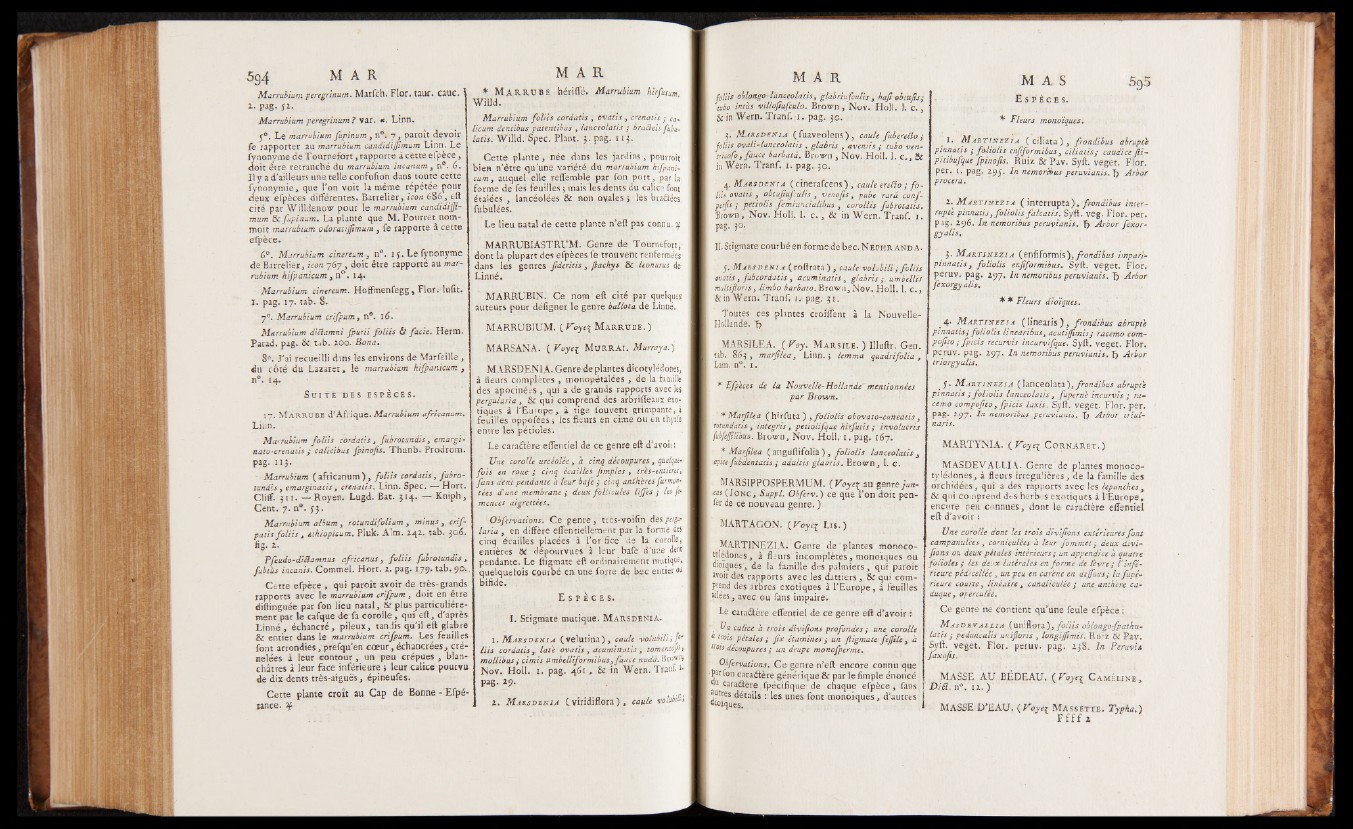 594 MAR
Marrubium peregrinum. Marsch. Flor. taur. cauc.
2. pag. 52.
Marrubium peregrinum? var. α. Linn.
5°. Le marrubium supinum, n°. 7, paroît devoir
se rapporter au marrubium candidissimum Linn. Le
synonyme de Tournefort, rapporté à cette espèce,
doit être retranché du marrubium incanum, n°. 6.
Il y a d'ailleurs une telle confusion dans toute cette
synonymie, que l'on voit la même répétée pour
deux espèces différentes. Barrelier, icon 686, est
cité par Willdenow pour le marrubium candidissi-
mum & supinum. La plante que M. Pourret nom-
moit marrubium odoratissimum, se rapporte à cette
espèce.
6°. Marrubium cinereum, n°. 15. Le synonyme
de Barrelier, icon 767, doit être rapporté au mar-
rubium hispanicum, n°. 14.
Marrubium cinereum. Hoffmensegg, Flor. lusit.
1. pag. 17. tab. 8.
7°. Marrubium crispum, n°. 16.
Marrubium dictamni spurii foliis & facie. Herm.
Parad. pag. & tab. 200. Bona.
8°. J'ai recueilli dans les environs de Marseille,
du côté du Lazaret, le marrubium hispanicum,
n°. 14.
SUITE DES ESPÈCES.
17. MARRUBE d'Afrique. Marrubium africanum.
Linn.
Marrubium foliis cordatis, subrotundis, emargi-
nato-crenatis; calicibus spinosis. Thunb. Prodrom.
pag. 113.
Marrubium (africanum), foliis cordatis, subro-
tundis, emarginatis, crenatis. Linn. Spec. — Hort.
Cliff. 311. — Royen. Lugd. Bat. 314. — Kniph,
Cent. 7. n°. 53.
Marrubium album, rotundifolium, minus, cris-
patis foliis, æthiopicum. Pluk. Alm. 242. tab. 306.
fig. 2.
Pseudo-dictamnus africanus, foliis subrotundis,
subtùs incanis. Commel. Hort. 2. pag. 179. tab. 90.
Cette espèce, qui paroît avoir de très-grands
rapports avec le marrubium crispum, doit en être
distinguée par son lieu natal, & plus particulière-
ment par le casque de sa corolle, qui est, d'après
Linné, échancré, pileux, tandis qu'il est glabre
& entier dans le marrubium crispum. Les feuilles
sont arrondies, presqu'en cœur, échancrées, cré-
nelées à leur contour, un peu crépues, blan-
châtres à leur face inférieure; leur calice pourvu
de dix dents très-aiguës, épineuses.
Cette plante croît au Cap de Bonne-Espé-
rance. ♃
MAR
* MARRUBE hérissé. Marrubium hirsutum.
Willd.
Marrubium foliis cordatis, ovatis, crenatis; ca-
licum dentibus patentibus, lanceolatis; bracteis subu-
latis. Willd. Spec. Plant. 3. pag. 113.
Cette plante, née dans les jardins, pourroit
bien n'être qu'une variété du marrubium hispani-
cum, auquel elle ressemble par son port, par la
forme de ses feuilles; mais les dents du calice sont
étalées, lancéolées & non ovales; les bractées
subulées.
Le lieu natal de cette plante n'est pas connu. ♃
MARRUBIASTRUM. Genre de Tournefort,
dont la plupart des espèces se trouvent renfermées
dans les genres sideritis, stachys & leonurus de
Linné.
MARRUBIN. Ce nom est cité par quelques
auteurs pour désigner le genre ballota de Linné.
MARRUBIUM. (Voyez MARRUBE.)
MARSANA. (Voyez MURRAI. Murraya.)
MARSDENIA. Genre de plantes dicotylédones,
à fleurs complètes, monopétalées, de la famille
des apocinées, qui a de grands rapports avec les
pergularia, & qui comprend des arbrisseaux exo-
tiques à l'Europe, à tige souvent grimpante, à
feuilles opposées; les fleurs en cime ou en thyrse
entre les pétioles.
Le caractère essentiel de ce genre est d'avoir:
Une corolle urcéolée, à cinq découpures, quelque-
fois en roue; cinq écailles simples, très-entières,
sans dent pendante à leur base; cinq anthères surmon-
tées d'une membrane; deux follicules lisses; les se-
mences aigrettées.
Observations. Ce genre, très-voisin des pergu-
laria, en diffère essentiellement par la forme des
cinq écailles placées à l'orifice de la corolle,
entières & dépourvues à leur base d'une dent
pendante. Le stigmate est ordinairement mutique,
quelquefois courbé en une sorte de bec entier ou
bifide.
ESPÈCES.
I. Stigmate mutique. MARSDENIA.
1. MARSDENIA (velutina), caule volubili; fo-
liis cordatis, latè ovatis, acuminatis, tomentosis,
mollibus; cimis umbelliformibus, fauce nudâ. Brown,
Nov. Holl. 1. pag. 461, & in Wern. Tranf. 1.
pag. 29.
2. MARSDENIA (viridiflora), caule volubili;
MAR
foliis oblongo-lanceolatis, glabriusculis, basi obtusis;
tubo intùs villosiusculo. Brown, Nov. Holl. l. c.,
& in Wern. Tranf. 1. pag. 30.
3. MARSDENIA (suaveolens), caule suberecto;
foliis ovali-lanceolatis, glabris, aveniis; tubo ven-
tricoso, fauce barbatâ. Brown, Nov. Holl. l. c., &
in Wern. Tranf. 1. pag. 30.
4. MARSDENIA (cinerascens), caule erecto; fo-
liis ovatis, obtusiusculis, venosis, pube rarâ conf-
persis; petiolis semiuncialibus, corollis subrotatis.
Brown, Nov. Holl. l. c., & in Wern. Tranf. 1.
pag. 30.
II. Stigmate courbé en forme de bec. NEPHRANDA.
5. MARSDENIA (rostrata), caule volubili; foliis
ovatis, subcordatis, acuminatis, glabris; umbellis
multifloris, limbo barbato. Brown, Nov. Holl. l. c.,
& in Wern. Tranf. 1. pag. 31.
Toutes ces plantes croissent à la Nouvelle-
Hollande. ♄
MARSILEA. (Voy. MARSILE.) Illustr. Gen.
tab. 863, marsilea, Linn.; lemma quadrifolia,
Lam. n°. 1.
* Espèces de la Nouvelle-Hollande mentionnées
par Brown.
* Marsilea (hirsuta), foliolis obovato-cuneatis,
rotundatis, integris, petiolisque hirsutis; involucris
subsessilibus. Brown, Nov. Holl. 1. pag. 167.
* Marsilea (angustifolia), foliolis lanceolatis,
apice subdentatis; adultis glabris. Brown, l. c.
MARSIPPOSPERMUM. (Voyez au genre jun-
cus (JONC, Suppl. Observ.) ce que l'on doit pen-
ser de ce nouveau genre.)
MARTAGON. (Voyez LIS.)
MARTINEZIA. Genre de plantes monoco-
tylédones, à fleurs incomplètes, monoïques ou
dioïques, de la famille des palmiers, qui paroît
avoir des rapports avec les dattiers, & qui com-
prend des arbres exotiques à l'Europe, à feuilles
ailées, avec ou sans impaire.
Le caractère essentiel de ce genre est d'avoir:
Un calice à trois divisions profondes; une corolle
à trois pétales; six étamines; un stigmate sessile, à
trois découpures; un drupe monosperme.
Observations. Ce genre n'est encore connu que
par son caractère générique & par le simple énoncé
du caractère spécifique de chaque espèce, sans
autres détails: les unes sont monoïques, d'autres
dioïques.
MAS 595
ESPÈCES.
* Fleurs monoïques.
1. MARTINEZIA (ciliata), frondibus abruptè
pinnatis; foliolis ensiformibus, ciliatis; caudice sti-
pitibusque spinosis. Ruiz. & Pav. Syst. veget. Flor.
per. 1. pag. 295. In nemoribus peruvianis. ♄ Arbor
procera.
2. MARTINEZIA (interrupta), frondibus inter-
ruptè pinnatis, foliolis falcatis. Syst. veg. Flor. per.
pag. 296. In nemoribus peruvianis. ♄ Arbor sexor-
gyalis.
3. MARTINEZIA (ensiformis), frondibus impari-
pinnatis, foliolis ensiformibus. Syst. veget. Flor.
peruv. pag. 297. In nemoribus peruvianis. ♄ Arbor
sexorgyalis.
** Fleurs dioïques.
4. MARTINEZIA (linearis), frondibus abruptè
pinnatis; foliolis linearibus, acutissimis; racemo com-
posito; spicis recurvis incurvisque. Syst. veget. Flor.
peruv. pag. 297. In nemoribus peruvianis. ♄ Arbor
triorgyalis.
5. MARTINEZIA (lanceolata), frondibus abruptè
pinnatis; foliolis lanceolatis, supernè incurvis; ra-
cemo composito, spicis laxis. Syst. veget. Flor. per.
pag. 297. In nemoribus peruvianis. ♄ Arbor triul-
naris.
MARTYNIA. (Voyez CORNARET.)
MASDEVALLIA. Genre de plantes monoco-
tylédones, à fleurs irrégulières, de la famille des
orchidées, qui a des rapports avec les lepanthes,
& qui comprend des herbes exotiques à l'Europe,
encore peu connues, dont le caractère essentiel
est d'avoir:
Une corolle dont les trois divisions extérieures sont
campanulées, corniculées à leur sommet; deux divi-
sions ou deux pétales intérieurs; un appendice à quatre
folioles; les deux latérales en forme de lèvre; l'infé-
rieure pédicellée, un peu en carène en dessous; la supé-
rieure courte, linéaire, canaliculée; une anthère ca-
duque, operculée.
Ce genre ne contient qu'une seule espèce:
MASDEVALLIA (uniflora), foliis oblongo-spathu-
latis; pedunculis unifloris, longissimis. Ruiz & Pav.
Syst. veget. Flor. peruv. pag. 238. In Peruviæ
saxosis.
MASSE AU BEDEAU. (Voyez CAMÉLINE,
Dict. n°. 12.)
MASSE D'EAU. (Voyez MASSETTE. Typha.)
Ffff 2